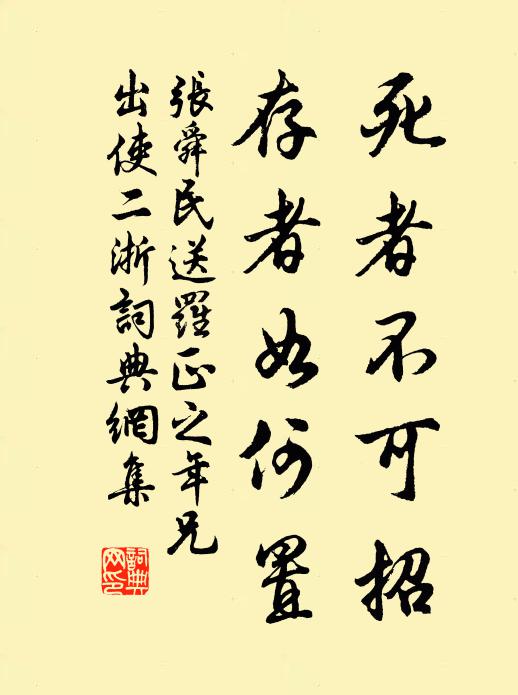 死者不可招
存者如何置
張舜民送羅正之年兄
出使二浙詞典網集
詞典网印